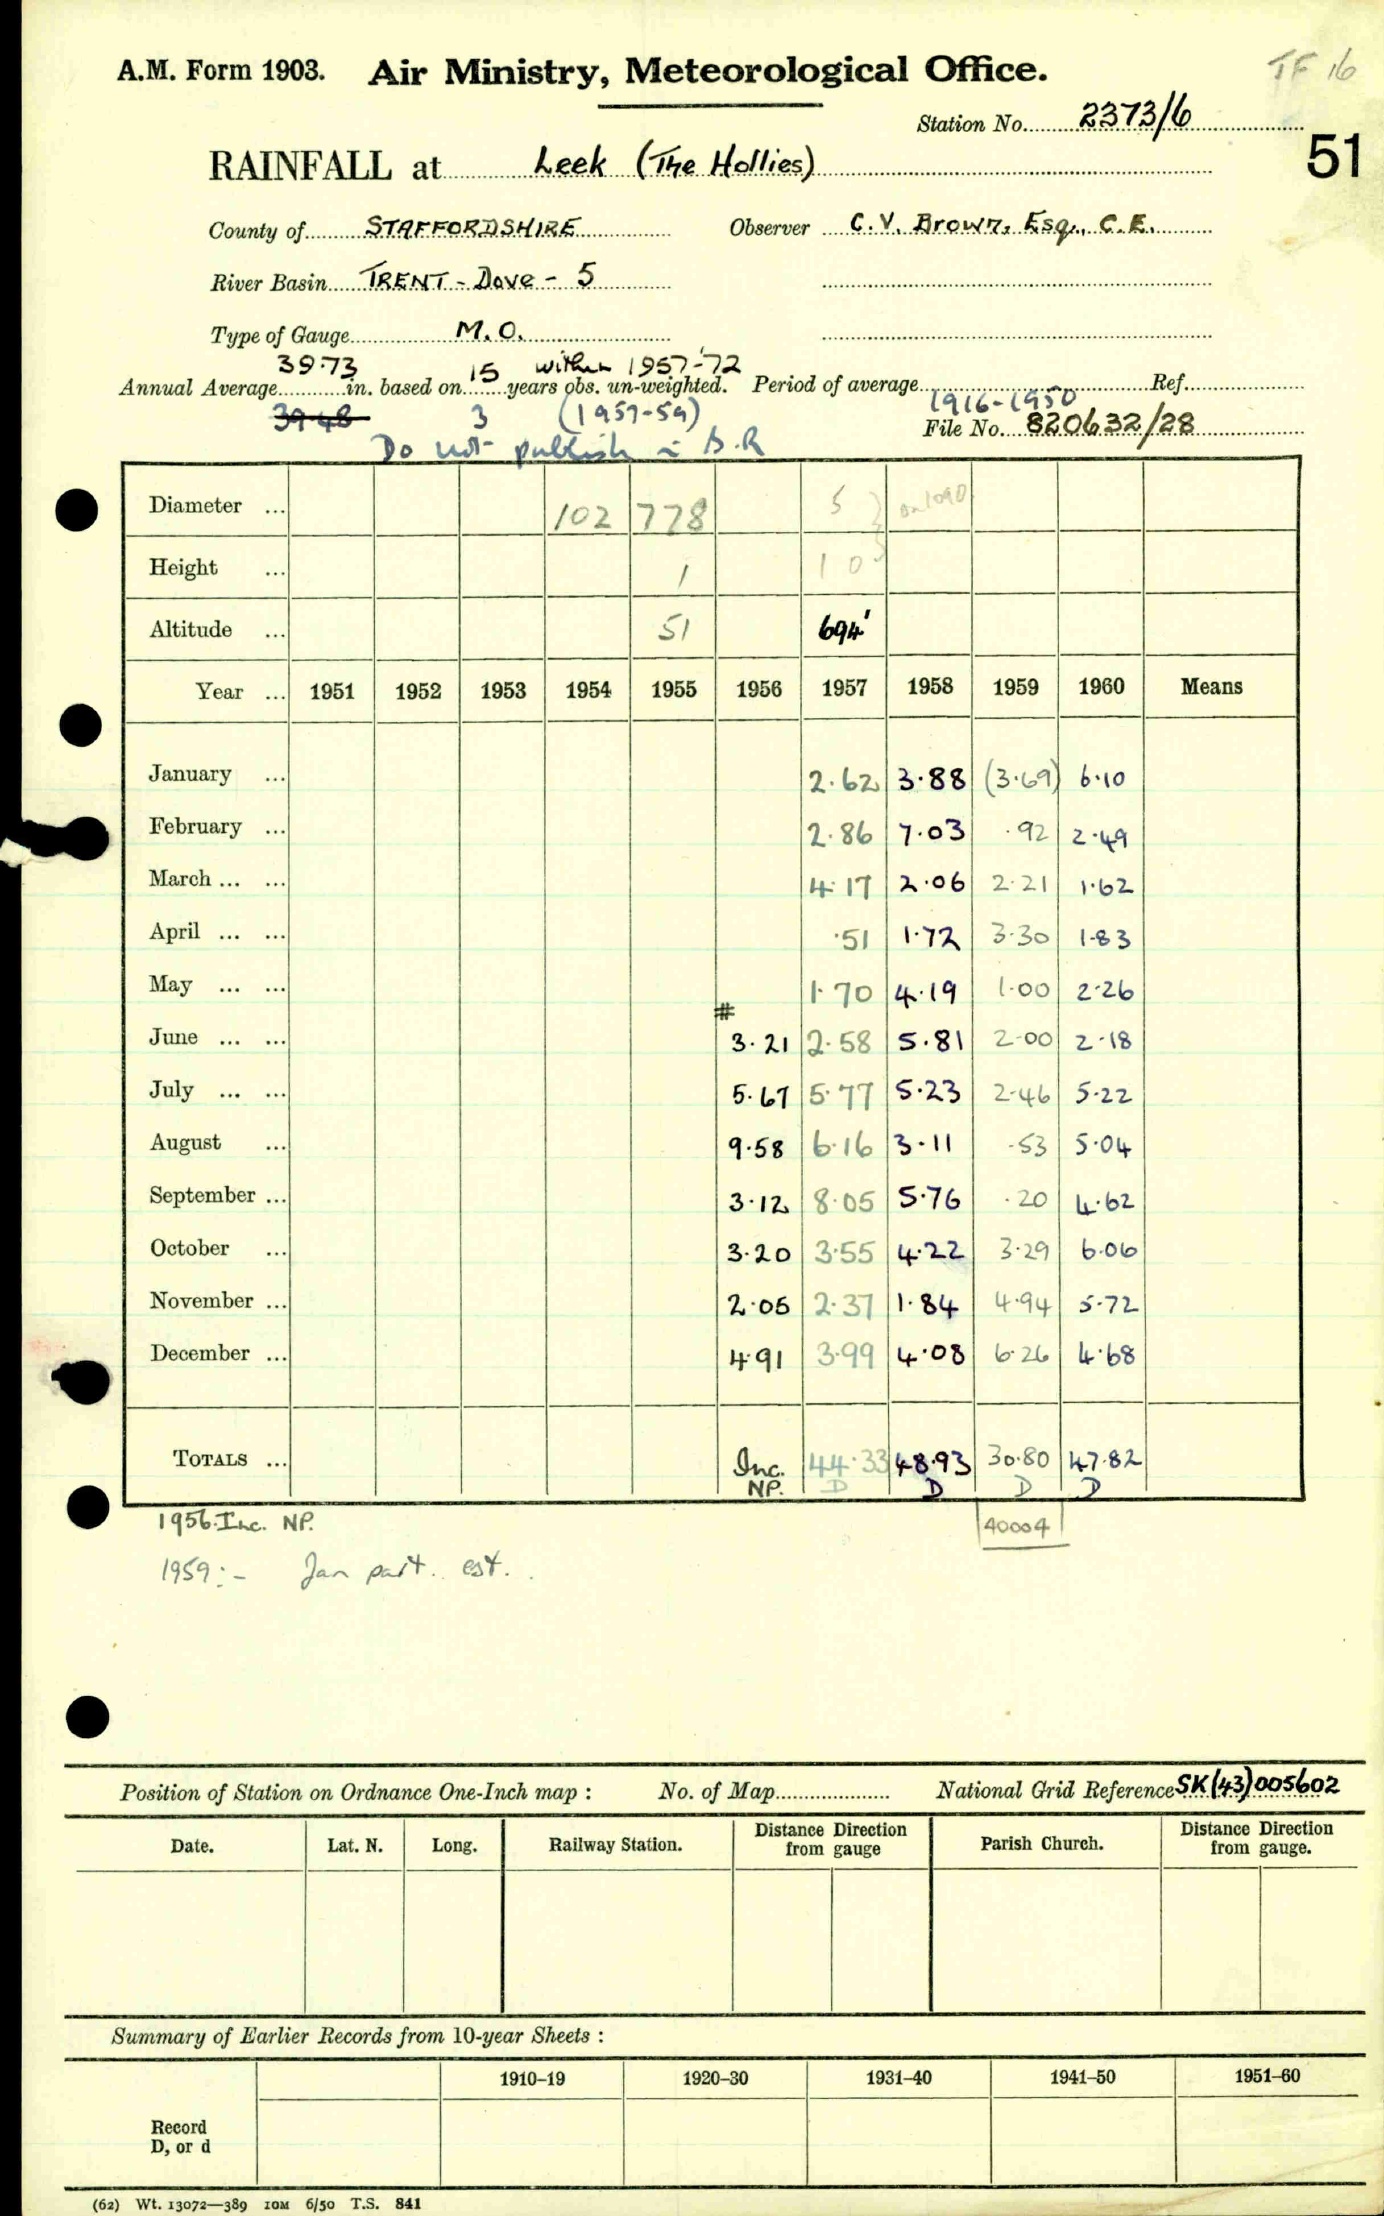 TF 16
A.M. Form 1903. Air Ministry, Meteorological Office.
Station No. 2373/6
51
RAINFALL at Leek (The Hollies)
County of STAFFORDSHIRE Observer C.V. Brown, Esq., C.E.
River Basin TRENT - Dove - 5
Type of Gauge M.O.
39.73 15 within 1957-'72
Annual Average in. based on years obs. un-weighted. Period of average 1916-1950 Ref.
39.48 3 (1957-59) File No. 820632/28
Do not publish in B.R
Diameter ... 102 778 5
Height ... 1 1 0
Altitude ... 51 694'
Year ... 1951 1952 1953 1954 1955 1956 1957 1958 1959 1960 Means
January ... 2.62 3.88 (3.69) 6.10
February ... 2.86 7.03 .92 2.49
March ... ... 4.17 2.06 2.21 1.62
April ... ... .51 1.72 3.30 1.83
May ... ... 1.70 4.19 1.00 2.26
#
June ... ... 3.21 2.58 5.81 2.00 2.18
July ... ... 5.67 5.77 5.23 2.46 5.22
August ... 9.58 6.16 3.11 .53 5.04
September ... 3.12 8.05 5.76 .20 4.62
October ... 3.20 3.55 4.22 3.29 6.06
November ... 2.05 2.37 1.84 4.94 5.72
December ... 4.91 3.99 4.08 6.26 4.68
TOTALS ... Inc. 44.33 48.93 30.80 47.82
NP. D D D D
1956. Inc. NP. 40004
1959:- Jan part. est.
Position of Station on Ordnance One-Inch map : No. of Map National Grid Reference SK(43)005602
Date. Lat. N. Long. Railway Station. Distance Direction from gauge Parish Church. Distance Direction from gauge.
Summary of Earlier Records from 10-year Sheets :
1910–19 1920–30 1931–40 1941–50 1951–60
Record
D, or d
(62) Wt. 13072—389 10M 6/50 T.S. 841